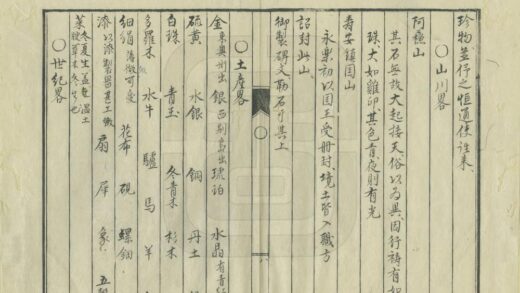 珍物並行之恒通使往来
〇山川畧
阿蘓山
其石無故火起接天俗以為異因行禱有如
珠大如雞卵其色青夜則有光
寿安鎮国山
永樂初以国王受冊封境土皆入職方
詔封此山
御製碑文勒石于其上
〇土産畧
金 東奥州出 銀 西別嶌出 琥珀 水晶 有青
硫黄 水銀 銅 丹土
白珠 青玉 冬青木 杉木
多羅木 水牛 驢 馬 羊
細絹 薄緻可愛 花布 硯 螺鈿
漆 以漆製器甚工緻 扇 犀 象
菜 冬夏生
〇世紀畧